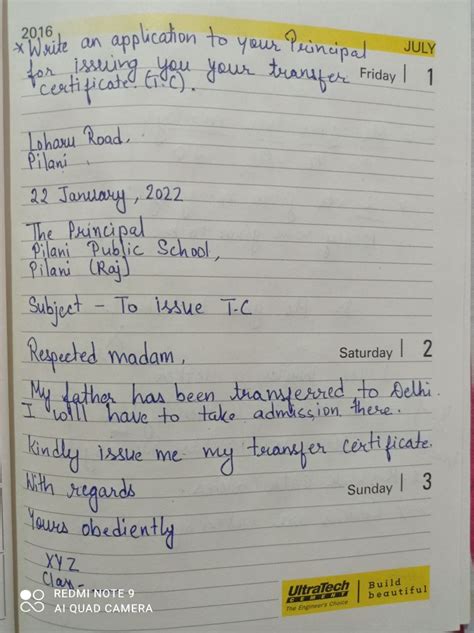 2016
JULY
* Write an application to your Principal
for issuing you your transfer
certificate. (T.C).
Friday | 1
Loharu Road,
Pilani.
22 January, 2022
The Principal
Pilani Public School,
Pilani (Raj)
Subject - To issue T.C
Respected madam,
Saturday | 2
My father has been transferred to Delhi.
I will have to take admission there.
Kindly issue me my transfer certificate.
With regards
Sunday | 3
Yours obediently
XYZ
UltraTech
CEMENT
The Engineer's Choice
Build
beautiful
REDMI NOTE 9
AI QUAD CAMERA